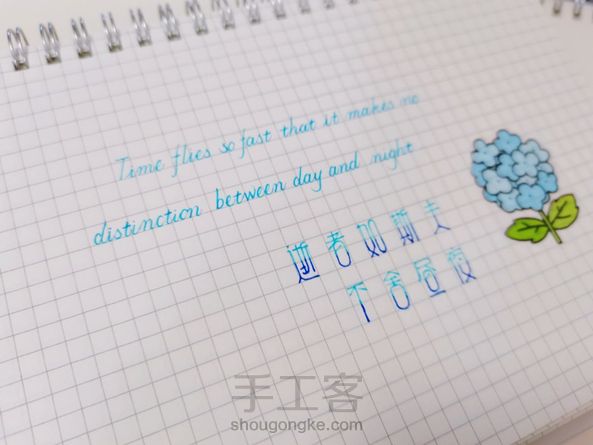 Time flies so fast that it makes no
distinction between day and night
逝者如斯夫
不舍昼夜
手工客
shougongke.com